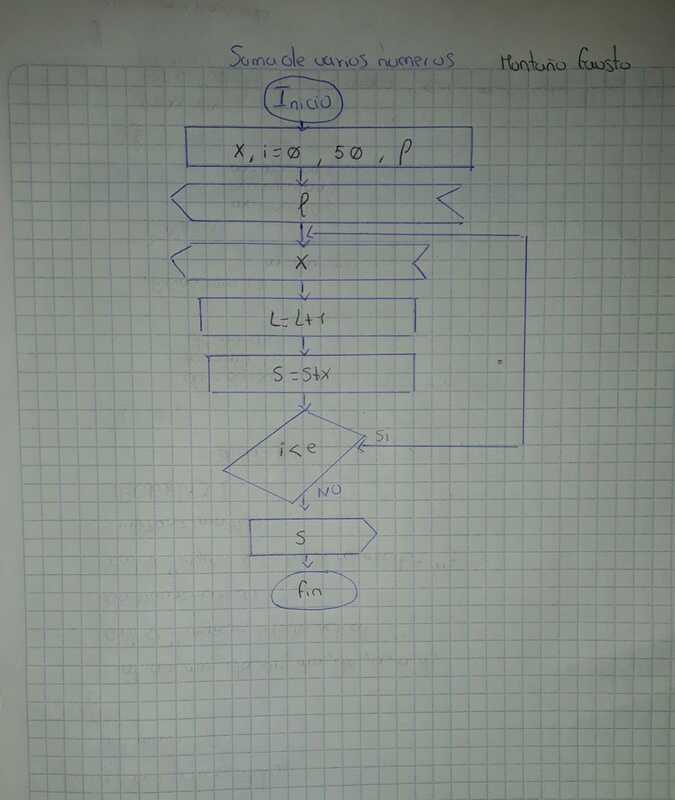 Suma de varios numeros Montaño Fausto
Inicio
x, i=0 , 50 , l
l
x
L=L+1
S=S+x
i<e
Si
NO
S
fin